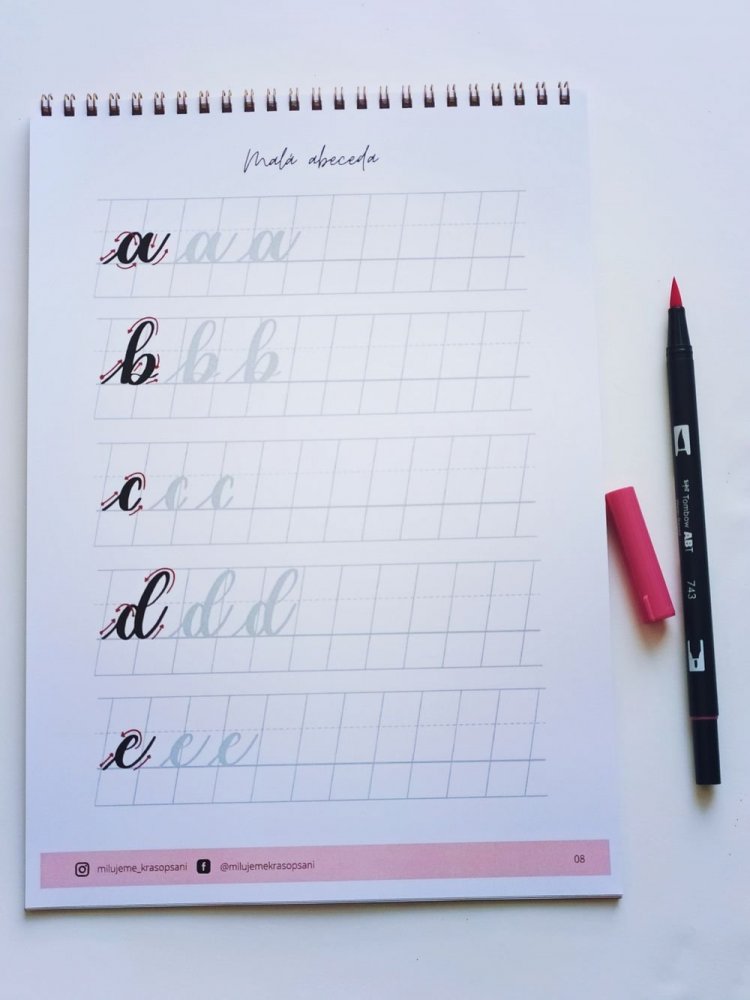 Malá abeceda
a a a
b b b
c c c
d d d
e e e
milujeme_krasopsani @milujemekrasopsani 08
Tombow ABT 743